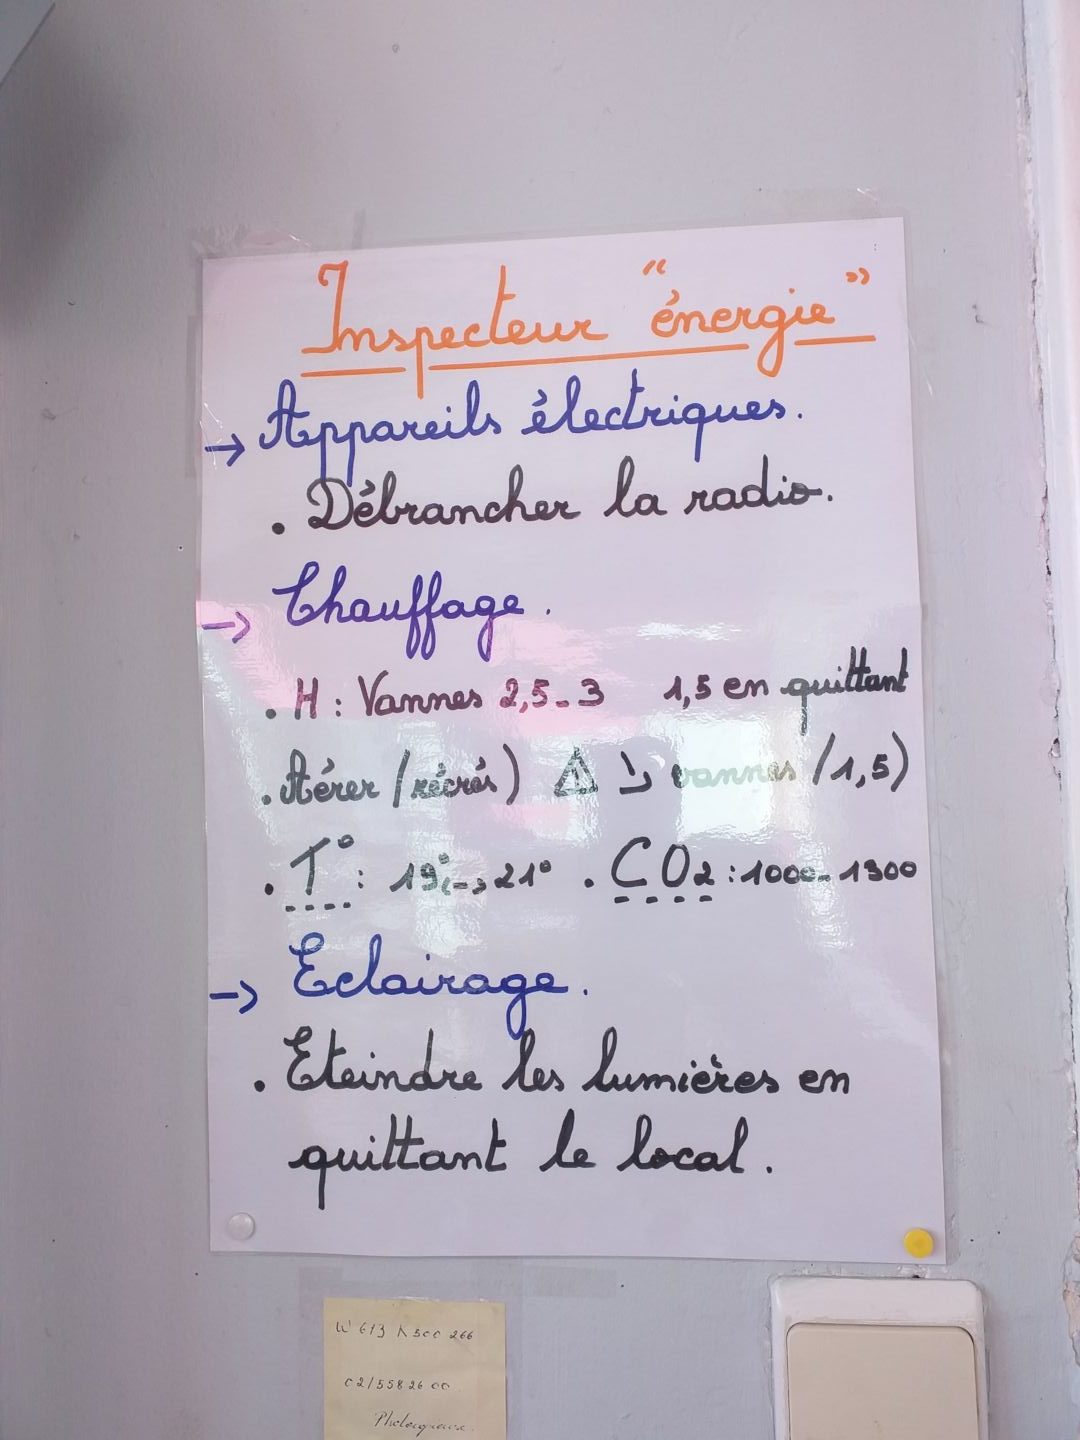 Inspecteur "énergie"
→ Appareils électriques.
. Débrancher la radio.
→ Chauffage.
. H : Vannes 2,5 - 3 1,5 en quittant
. Aérer (récrés) ⚠ ↘ vannes (1,5)
. T° : 19° <-> 21° . CO2 : 1000 - 1300
→ Eclairage.
. Eteindre les lumières en
quittant le local.
W 613 K500 266
02/558 26 00